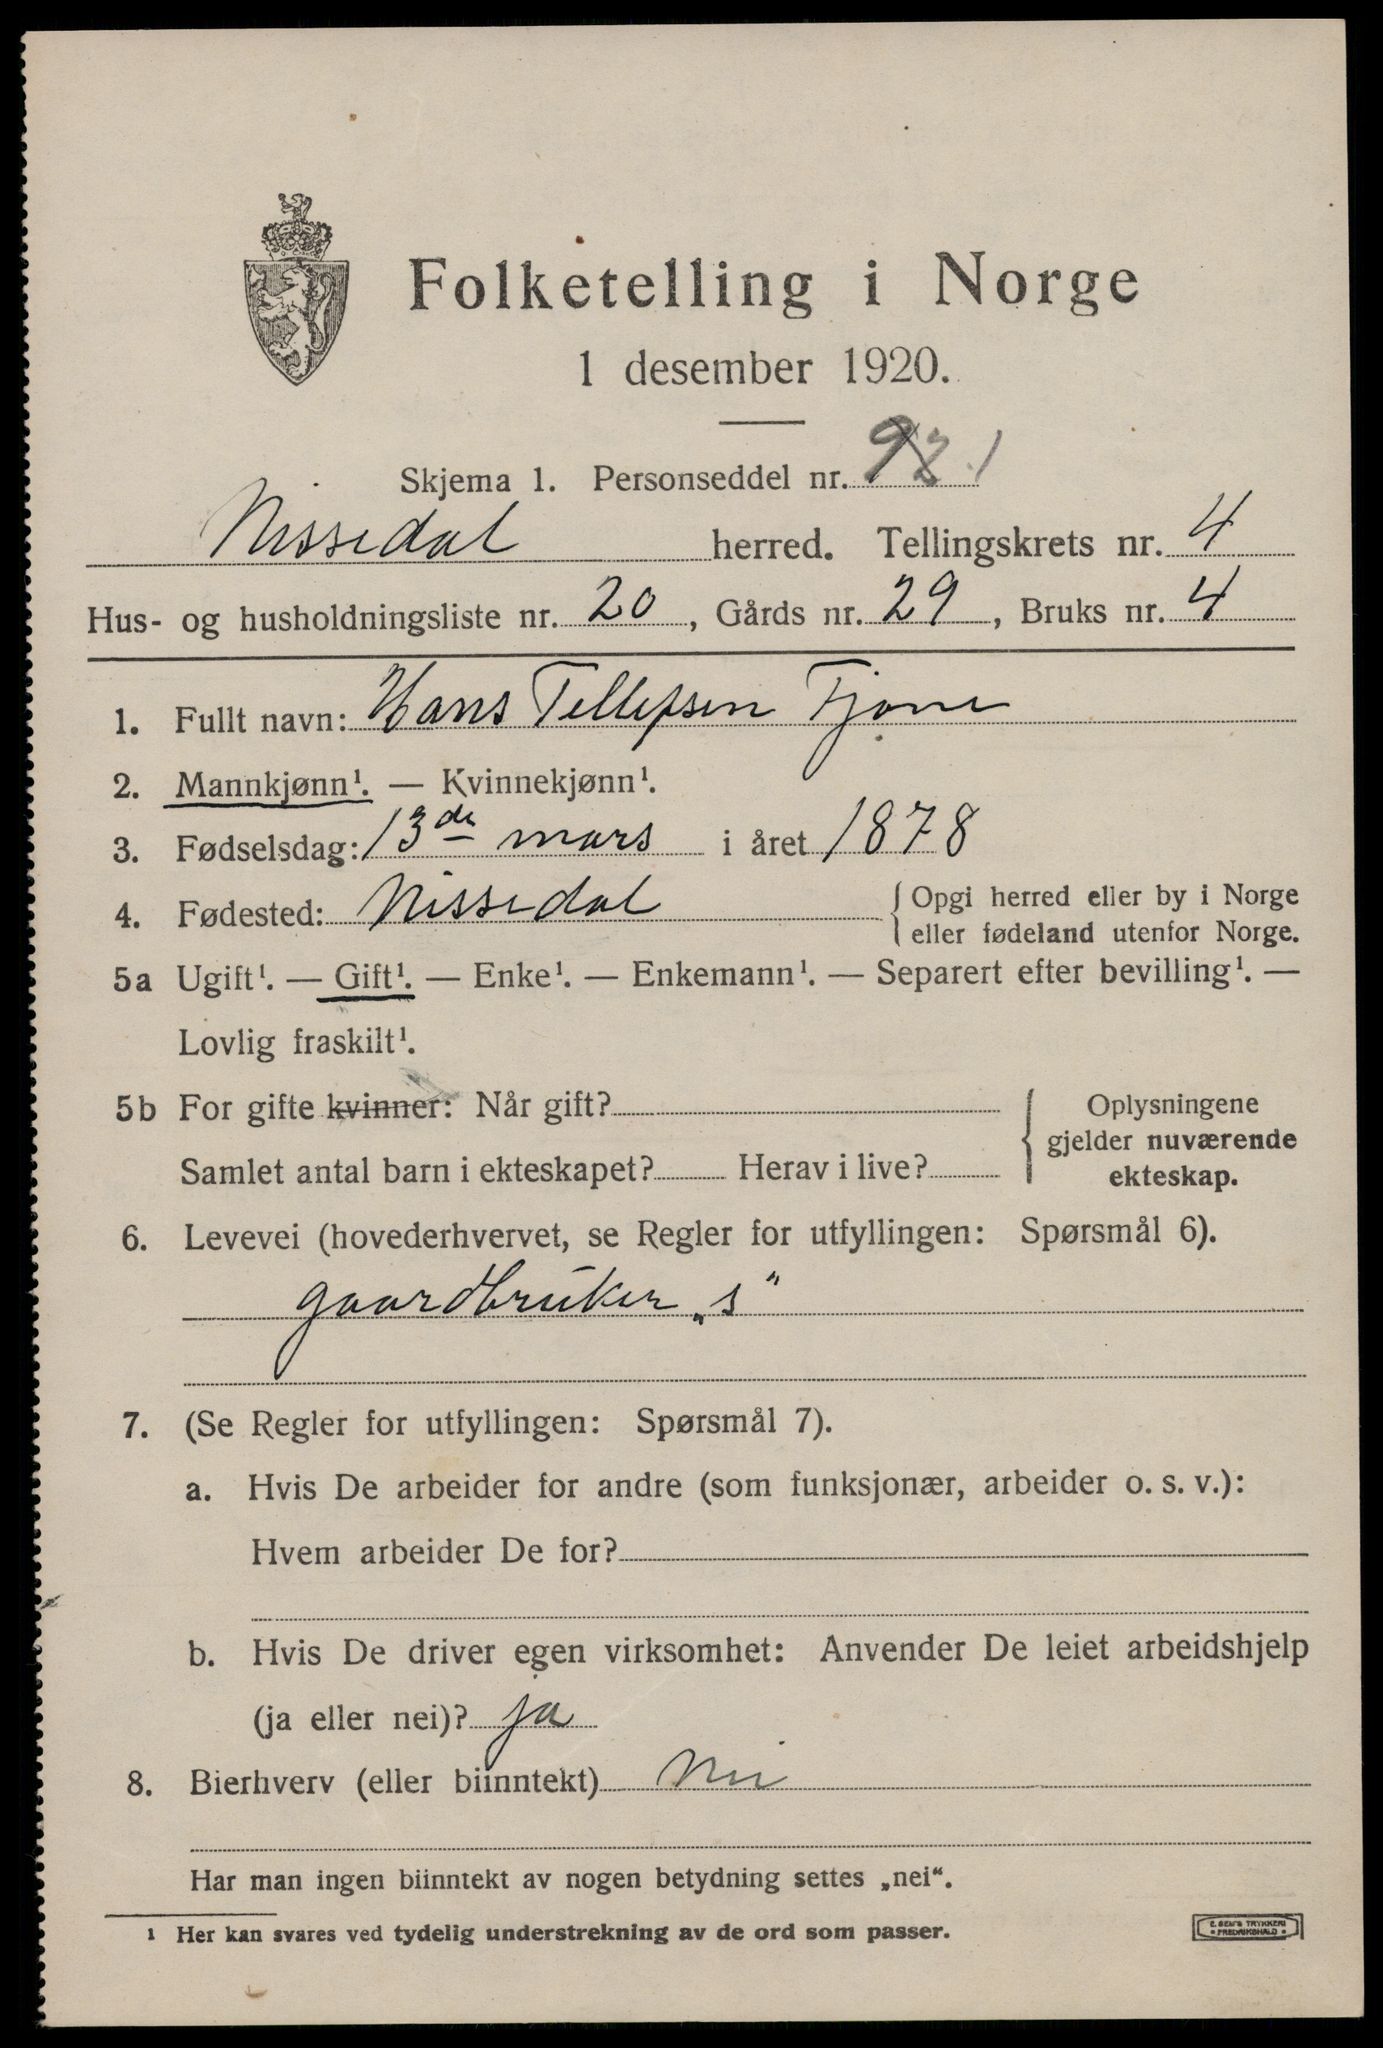 Folketelling i Norge
1 desember 1920.
Skjema 1. Personseddel nr.
Nissedal herred. Tellingskrets nr. 4
Hus- og husholdningsliste nr. 20, Gårds nr. 29, Bruks nr. 4
1. Fullt navn: Hans Tellefsen Fjone
2. Mannkjønn¹. — Kvinnekjønn¹.
3. Fødselsdag: 13de mars i året 1878
4. Fødested: Nissedal { Opgi herred eller by i Norge
eller fødeland utenfor Norge.
5a Ugift¹. — Gift¹. — Enke¹. — Enkemann¹. — Separert efter bevilling¹. —
Lovlig fraskilt¹.
5b For gifte kvinner: Når gift? { Oplysningene
gjelder nuværende
Samlet antal barn i ekteskapet? Herav i live? ekteskap.
6. Levevei (hovederhvervet, se Regler for utfyllingen: Spørsmål 6).
gaardbruker „s“
7. (Se Regler for utfyllingen: Spørsmål 7).
a. Hvis De arbeider for andre (som funksjonær, arbeider o. s. v.):
Hvem arbeider De for?
b. Hvis De driver egen virksomhet: Anvender De leiet arbeidshjelp
(ja eller nei)? ja
8. Bierhverv (eller biinntekt) Nei
Har man ingen biinntekt av nogen betydning settes „nei“.
¹ Her kan svares ved tydelig understrekning av de ord som passer.
E. SEM'S TRYKKERI
FREDRIKSHALD